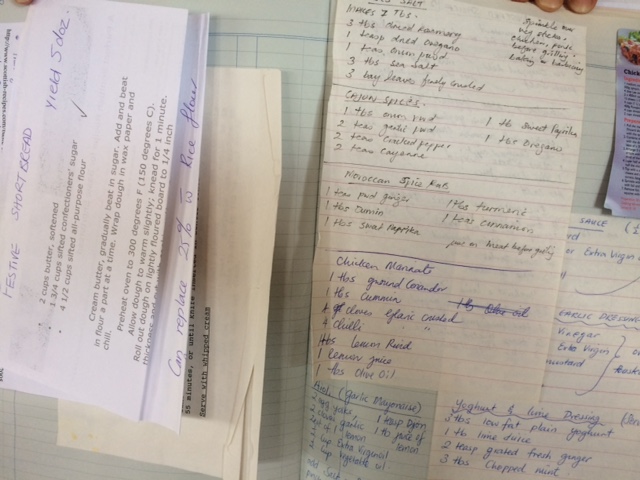 http://www.scottish-recipes.com
FESTIVE SHORTBREAD Yield 5 doz.
2 cups butter, softened
1 3/4 cups sifted confectioners' sugar
4 1/2 cups sifted all-purpose flour
Cream butter, gradually beat in sugar. Add and beat
in flour a part at a time. Wrap dough in wax paper and
chill.
Preheat oven to 300 degrees F (150 degrees C).
Allow dough to warm slightly; knead for 1 minute.
Roll out dough on lightly floured board to 1/4 inch
thickness and
Can replace 25% to Rice flour
55 minutes, or until knife
Serve with whipped cream
SALT
Makes 7 Tbs.
3 tbs dried Rosemary
1 teasp dried oregano
1 teas onion pwd
3 tbs sea salt
3 bay leaves finely
CAJUN SPICES.
1 tbs onion pwd
2 teas garlic pwd
2 teas cracked pepper
2 teas cayenne
1 tbs sweet Paprika
1 tbs Oregano
Moroccan Spice Rub
1 teas pwd ginger
1 tbs Cumin
1 tbs Sweet Paprika
1 tbs turmeric
1 teas cinnamon
on meat before grilling
Chicken Marinate
1 tbs ground Coriander
1 tbs Cummin
4 cloves garlic crushed
4 chilli " "
lemon Rind
1 lemon juice
1 tbs Olive Oil
(Garlic Mayonaise)
2 egg yolks
1 teasp Dijon
cloves garlic
1 tb juice of
lemon
cup Extra Virgin oil
cup vegetable oil
SAUCE
Extra Virgin
GARLIC DRESSING
Vinegar
Extra Virgin
mustard
Yoghurt & Lime Dressing
3 tbs low fat plain yoghurt
1 tb lime juice
2 teasp grated fresh ginger
3 tbs Chopped mint